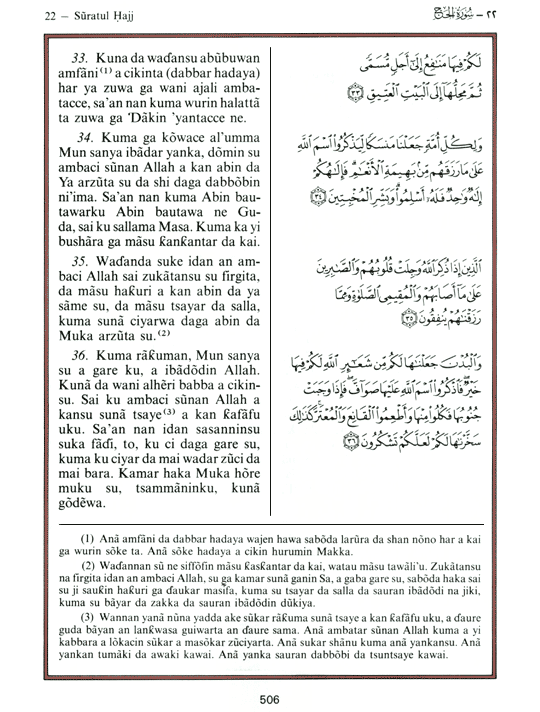 22 — Sūratul Ḥajj
٢٢ – سُورَةُ الحَجّ
33. Kuna da waɗansu abũbuwan
amfãni⁽¹⁾ a cikinta (dabbar hadaya)
har ya zuwa ga wani ajali amba-
tacce, sa'an nan kuma wurin halattã
ta zuwa ga 'Dãkin 'yantacce ne.
34. Kuma ga kõwace al'umma
Mun sanya ibãdar yanka, dõmin su
ambaci sũnan Allah a kan abin da
Ya arzũta su da shi daga dabbõbin
ni'ima. Sa'an nan kuma Abin bau-
tawarku Abin bautawa ne Gu-
da, sai ku sallama Masa. Kuma ka yi
bushãra ga mãsu ƙanƙantar da kai.
35. Waɗanda suke idan an am-
baci Allah sai zukãtansu su firgita,
da mãsu haƙuri a kan abin da ya
sãme su, da mãsu tsayar da salla,
kuma sunã ciyarwa daga abin da
Muka arzũta su.⁽²⁾
36. Kuma rãƙuman, Mun sanya
su a gare ku, a ibãdõdin Allah.
Kunã da wani alhẽri babba a cikin-
su. Sai ku ambaci sũnan Allah a
kansu sunã tsaye⁽³⁾ a kan ƙafãfu
uku. Sa'an nan idan sasanninsu
suka fãɗi, to, ku ci daga gare su,
kuma ku ciyar da mai wadar zũci da
mai bara. Kamar haka Muka hõre
muku su, tsammãninku, kunã
gõdẽwa.
لَكُمْ فِيهَا مَنَافِعُ إِلَىٰ أَجَلٍ مُّسَمًّى
ثُمَّ مَحِلُّهَا إِلَى الْبَيْتِ الْعَتِيقِ ﴿٣٣﴾
وَلِكُلِّ أُمَّةٍ جَعَلْنَا مَنسَكًا لِّيَذْكُرُوا اسْمَ اللَّهِ
عَلَىٰ مَا رَزَقَهُم مِّن بَهِيمَةِ الْأَنْعَامِ فَإِلَٰهُكُمْ
إِلَٰهٌ وَاحِدٌ فَلَهُ أَسْلِمُوا وَبَشِّرِ الْمُخْبِتِينَ ﴿٣٤﴾
الَّذِينَ إِذَا ذُكِرَ اللَّهُ وَجِلَتْ قُلُوبُهُمْ وَالصَّابِرِينَ
عَلَىٰ مَا أَصَابَهُمْ وَالْمُقِيمِي الصَّلَوٰةِ وَمِمَّا
رَزَقْنَاهُمْ يُنفِقُونَ ﴿٣٥﴾
وَالْبُدْنَ جَعَلْنَاهَا لَكُم مِّن شَعَائِرِ اللَّهِ لَكُمْ فِيهَا
خَيْرٌ فَاذْكُرُوا اسْمَ اللَّهِ عَلَيْهَا صَوَافَّ فَإِذَا وَجَبَتْ
جُنُوبُهَا فَكُلُوا مِنْهَا وَأَطْعِمُوا الْقَانِعَ وَالْمُعْتَرَّ كَذَٰلِكَ
سَخَّرْنَاهَا لَكُمْ لَعَلَّكُمْ تَشْكُرُونَ ﴿٣٦﴾
(1) Anã amfãni da dabbar hadaya wajen hawa sabõda larũra da shan nõno har a kai
ga wurin sõke ta. Anã sõke hadaya a cikin hurumin Makka.
(2) Waɗannan sũ ne siffõfin mãsu ƙasƙantar da kai, watau mãsu tawãli'u. Zukãtansu
na firgita idan an ambaci Allah, su ga kamar sunã ganin Sa, a gaba gare su, sabõda haka sai
su ji sauƙin haƙuri ga ɗaukar masĩfa, kuma su tsayar da salla da sauran ibãdõdi na jiki,
kuma su bãyar da zakka da sauran ibãdõdin dũkiya.
(3) Wannan yanã nũna yadda ake sũkar rãƙuma sunã tsaye a kan ƙafãfu uku, a ɗaure
guda bãyan an lanƙwasa guiwarta an ɗaure sama. Anã ambatar sũnan Allah kuma a yi
kabbara a lõkacin sũkar a masõkar zũciyarta. Anã sukar shãnu kuma anã yankansu. Anã
yankan tumãki da awaki kawai. Anã yanka sauran dabbõbi da tsuntsaye kawai.
506